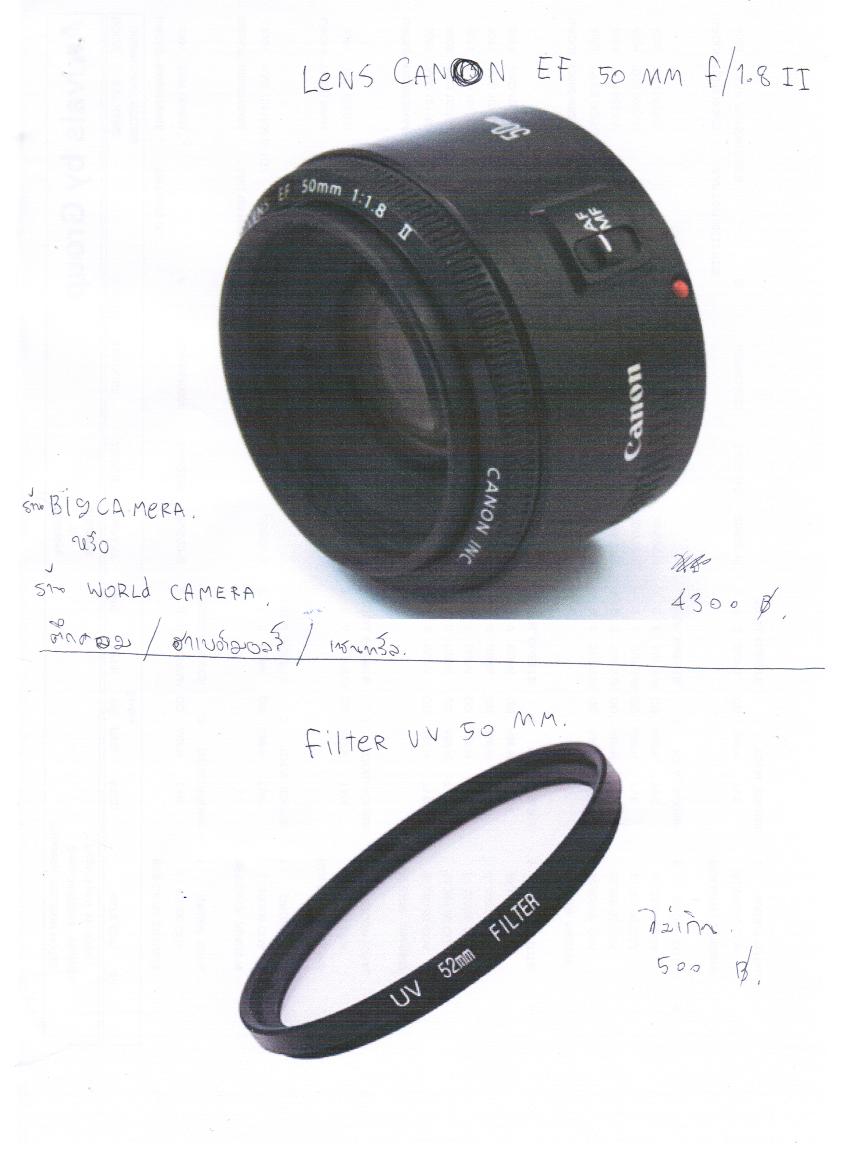 LENS CANON EF 50 MM f/1.8 II
50mm
LENS EF 50mm 1:1.8 II
AF
MF
Canon
CANON INC
ร้าน BIG CAMERA.
หรือ
ร้าน WORLD CAMERA.
4300 ฿.
ตึกคอม / ฮาเบอร์มอลล์ / เซนทรัล.
FILTER UV 50 MM.
UV 52mm FILTER
ไม่เกิน.
500 ฿.